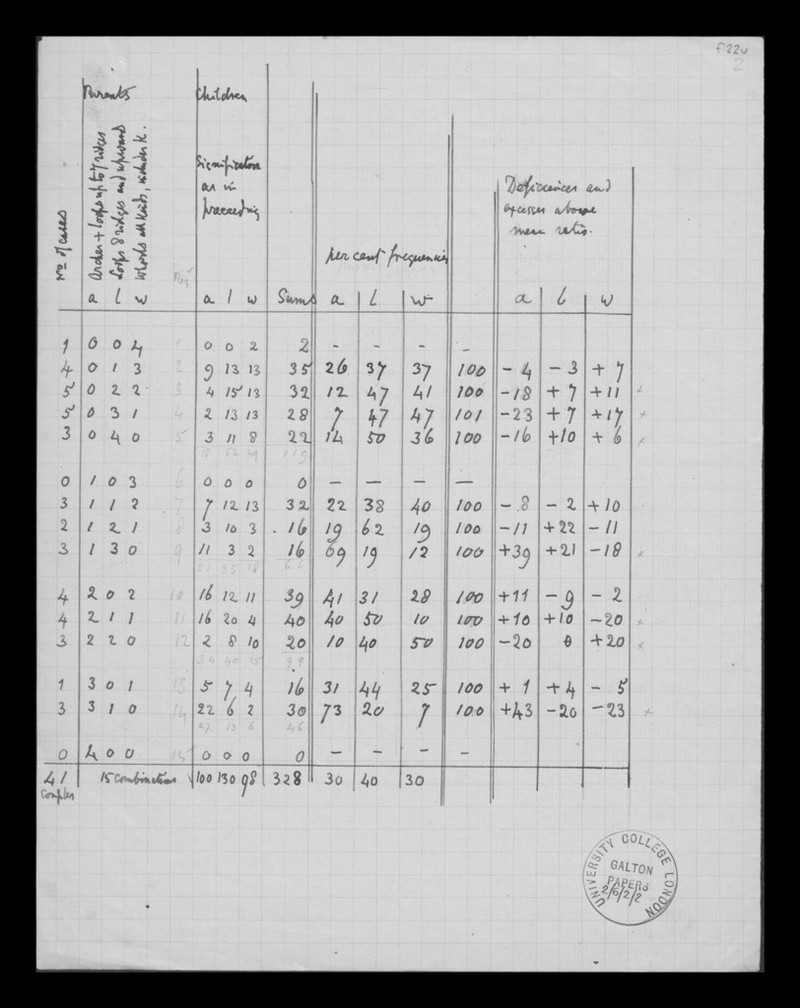 f22v
2
Parents
Children
No of cases
Arches + loops up to 7 ridges
loops 8 ridges and upwards
Whorls all kinds,
Signification
as in
preceeding
per cent frequencies
Deficiencies and
excesses above
mean ratio.
a l w a l w Sums a l w a l w
1 0 0 4 1 0 0 2 2 – – – –
4 0 1 3 2 9 13 13 35 26 37 37 100 – 4 – 3 + 7
5 0 2 2 3 4 15 13 32 12 47 41 100 –18 + 7 +11 x
5 0 3 1 4 2 13 13 28 7 47 47 101 –23 + 7 +17 x
3 0 4 0 5 3 11 8 22 14 50 36 100 –16 +10 + 6 x
18 52 49 119
0 1 0 3 6 0 0 0 0 – – – –
3 1 1 2 7 7 12 13 32 22 38 40 100 – 8 – 2 +10
2 1 2 1 8 3 10 3 16 19 62 19 100 –11 +22 –11
3 1 3 0 9 11 3 2 16 69 19 12 100 +39 +21 –18 x
21 25 18 64
4 2 0 2 10 16 12 11 39 41 31 28 100 +11 – 9 – 2
4 2 1 1 11 16 20 4 40 40 50 10 100 +10 +10 –20 x
3 2 2 0 12 2 8 10 20 10 40 50 100 –20 0 +20 x
34 40 25 99
1 3 0 1 13 5 7 4 16 31 44 25 100 + 1 + 4 – 5
3 3 1 0 14 22 6 2 30 73 20 7 100 +43 –20 –23 x
27 13 6 46
0 4 0 0 15 0 0 0 0 – – – –
41 15 Combinations 100 130 98 328 30 40 30
Couples
UNIVERSITY COLLEGE LONDON
GALTON
PAPERS
2/6/2/2